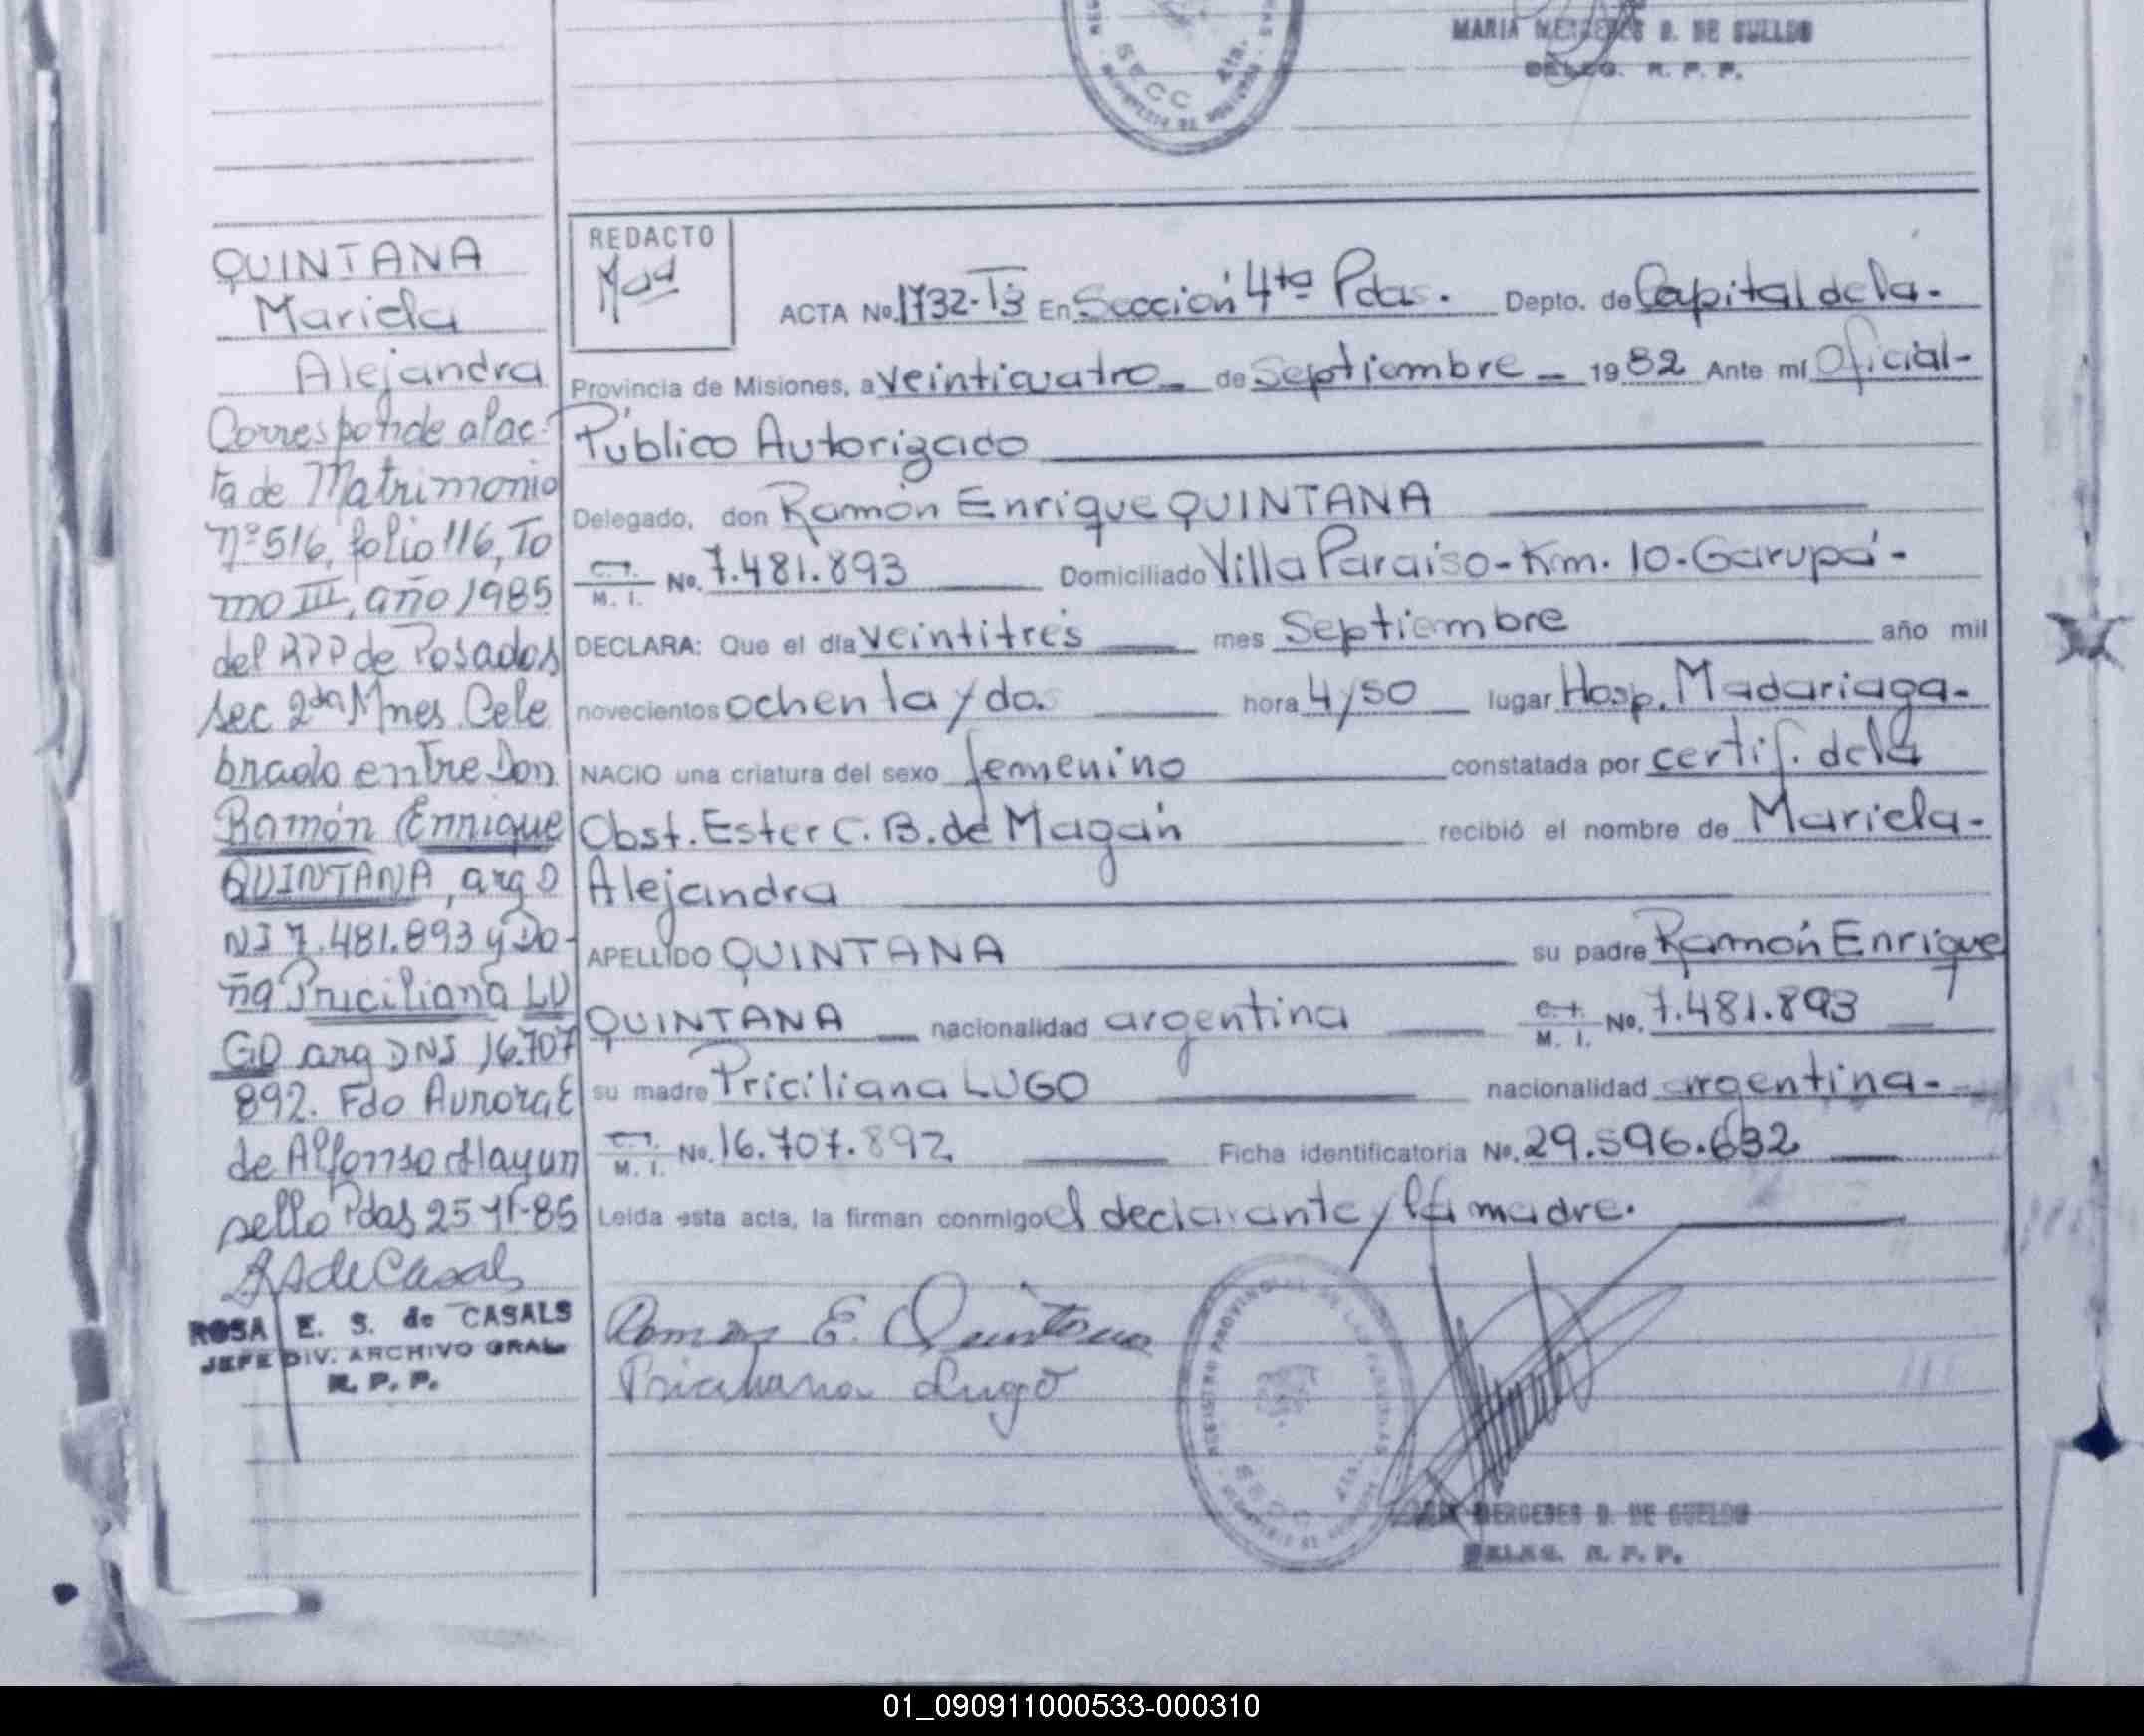 MARIA MERCEDES D. DE SUELDO
DELEG. R. P. P.
SECC 4ta.
QUINTANA
Mariela
Alejandra
Corresponde al ac-
ta de Matrimonio
Nº 516, folio 116, To
mo III, año 1985
del RPP de Posadas
sec 2da Mnes. Cele
brado entre Don
Ramón Enrique
QUINTANA, arg D
NI 7.481.893 y Do-
ña Priciliana LU
GO arg DNI 16.707
892. Fdo Aurora E
de Alfonso Hay un
sello Pdas 25-11-85
ROSA E. S. de CASALS
JEFE DIV. ARCHIVO GRAL.
R. P. P.
REDACTO
ACTA No. 1732-T3 En Sección 4ta Pdas. Depto. de Capital de la-
Provincia de Misiones, a veinticuatro de Septiembre 1982 Ante mí Oficial-
Público Autorizado
Delegado, don Ramón Enrique QUINTANA
M. I. No. 7.481.893 Domiciliado Villa Paraiso-Km. 10-Garupá-
DECLARA: Que el día veintitrés mes Septiembre año mil
novecientos ochenta y dos hora 4/50 lugar Hosp. Madariaga-
NACIO una criatura del sexo femenino constatada por certif. de la
Obst. Ester C. B. de Magán recibió el nombre de Mariela-
Alejandra
APELLIDO QUINTANA su padre Ramón Enrique
QUINTANA nacionalidad argentina M. I. No. 7.481.893
su madre Priciliana LUGO nacionalidad argentina-
M. I. No. 16.707.892 Ficha identificatoria No. 29.596.632
Leída esta acta, la firman conmigo el declarante y la madre.
Ramon E. Quintana
Priciliana Lugo
MERCEDES D. DE SUELDO
DELEG. R. P. P.
01_090911000533-000310